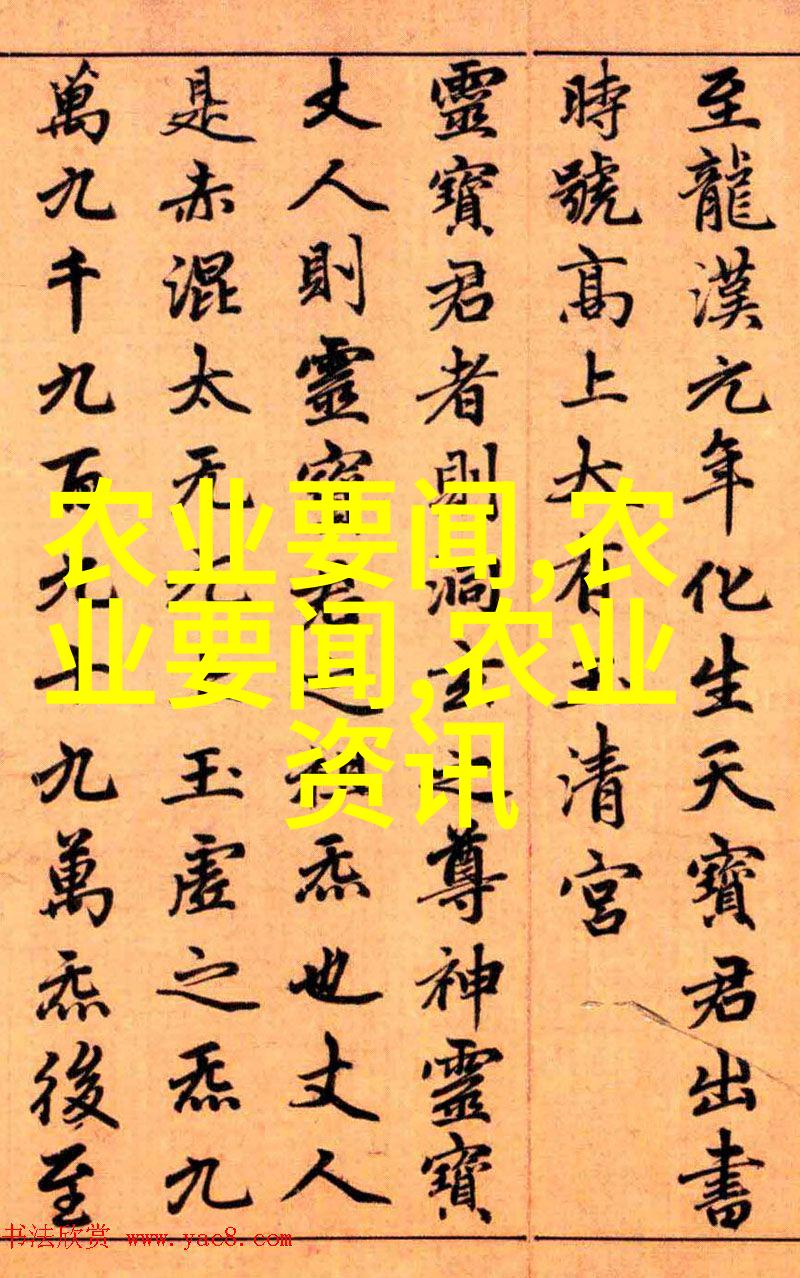 至龍漢元年化生天寶君出書
時號高上大有玉清宮
靈寶君者則洞玄之尊神靈寶
丈人則靈寶君之祖炁也丈人
是赤混太无元玉虛之炁九
萬九千九百九十九萬炁後至
农业要闻,农
业要闻,农业
资讯
书法欣赏 www.yac8.com